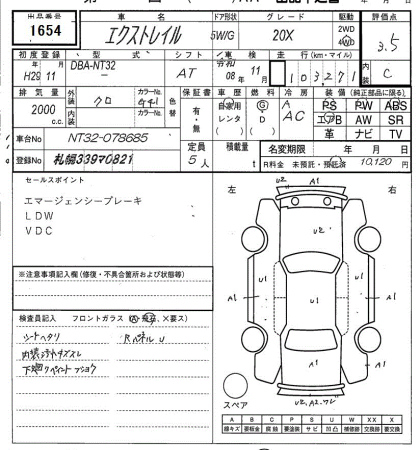 出品番号 車名 ドア形状 グレード 駆動 評価点
1654 エクストレイル 5W/G 20X 2WD 4WD 3.5
初度登録 型式 シフト 車検 走行(km・マイル) 内装
H29 11 DBA-NT32 AT 令和 08年 11月 103271 C
排気量 外装 カラーNo. 色替 保証書 車歴 燃料 冷房 装備(純正部品に限る)
2000c.c. クロ G41 有・無 自家用 レンタ G D A AC PS PW ABS
内装 カラーNo. エアB AW SR
革 ナビ TV
車台No NT32-078685 定員 積載量 名変期限 年 月 日
登録No 札幌339マ0821 5人 R料金 未預託・預託済 10,120円
セールスポイント
エマージェンシーブレーキ
LDW
VDC
※注意事項記入欄(修復・不具合箇所および状態等)
検査員記入 フロントガラス
シートヘタリ Rパネル U
内装汚れキズスレ
下廻りペイント フショク
左 右
U2 A1
A1 U1 U1 A1
A1
U2,A2,ワレ
スペア
A B C P S U W X XX
線キズ 要板金 腐蝕 要塗装 サビ 凹凸 補修跡 交換跡 要交換